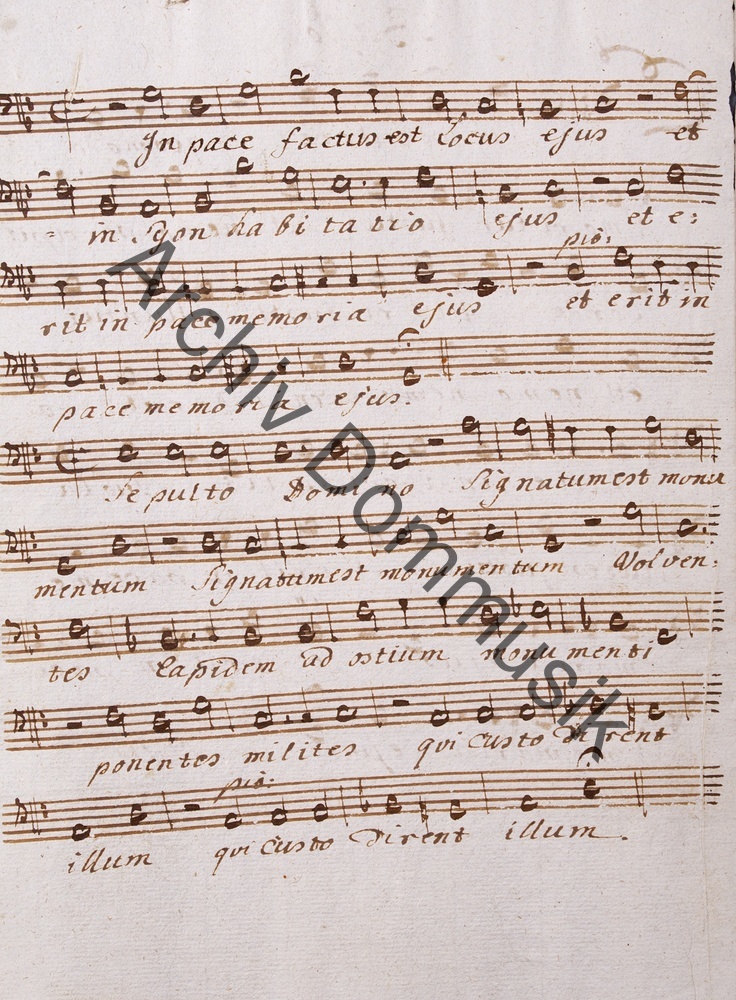 In pace factus est locus ejus et
in Syon habitatio ejus et e:
pio:
rit in pace memoria ejus et erit in
pace memoria ejus.
Sepulto Domino Signatum est monu
mentum Signatum est monumentum Volven:
tes Lapidem ad ostium monumenti
ponentes milites qui Custodirent
pio:
illum qui Custodirent illum.
Archiv Dommusik